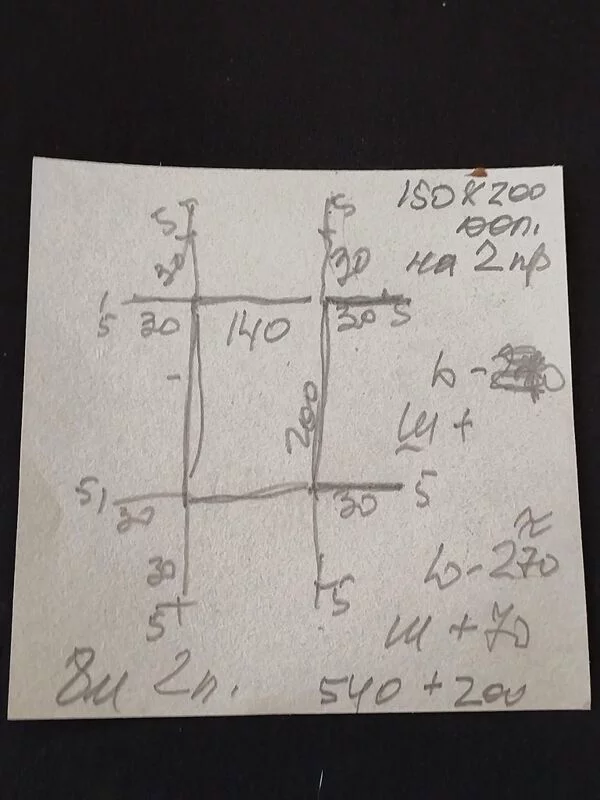 5 5
150x200
юбп.
30 30
на 2 пр
5 30 140 30 5
200
Ш +
5 30 30 5
30
L - 270
5 5
Ш + 70
8м 2п. 540 + 200